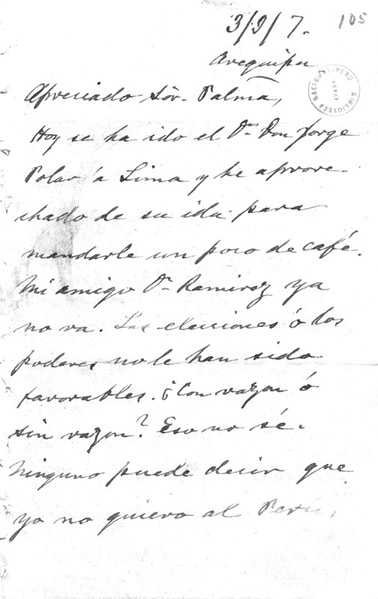 3/9/7. 105
Arequipa
Apreciado Sõr. Palma,
Hoy se ha ido el Dr. Don Jorge
Polar á Lima y he aprove
chado de su ida para
mandarle un poco de café.
Mi amigo Dr. Ramirez ya
no va. Las elecciones ó los
poderes no le han sido
favorables. ¿Con razon ó
sin razon? Eso no sé.
Ninguno puede decir que
yo no quiero al Peru,
BIBLIOTECA NACIONAL
PERU